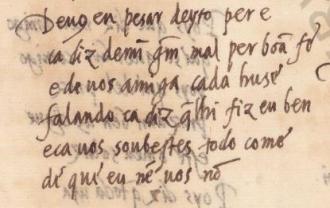 Deuo en pesar deyto per e
ca diz demĩ grm̃ mal per boã fe
e de uos amiga cada huse
falando ca diz q̃lhi fiz eu ben
e ca uos soubestes todo come
de que eu nẽ uos nõ